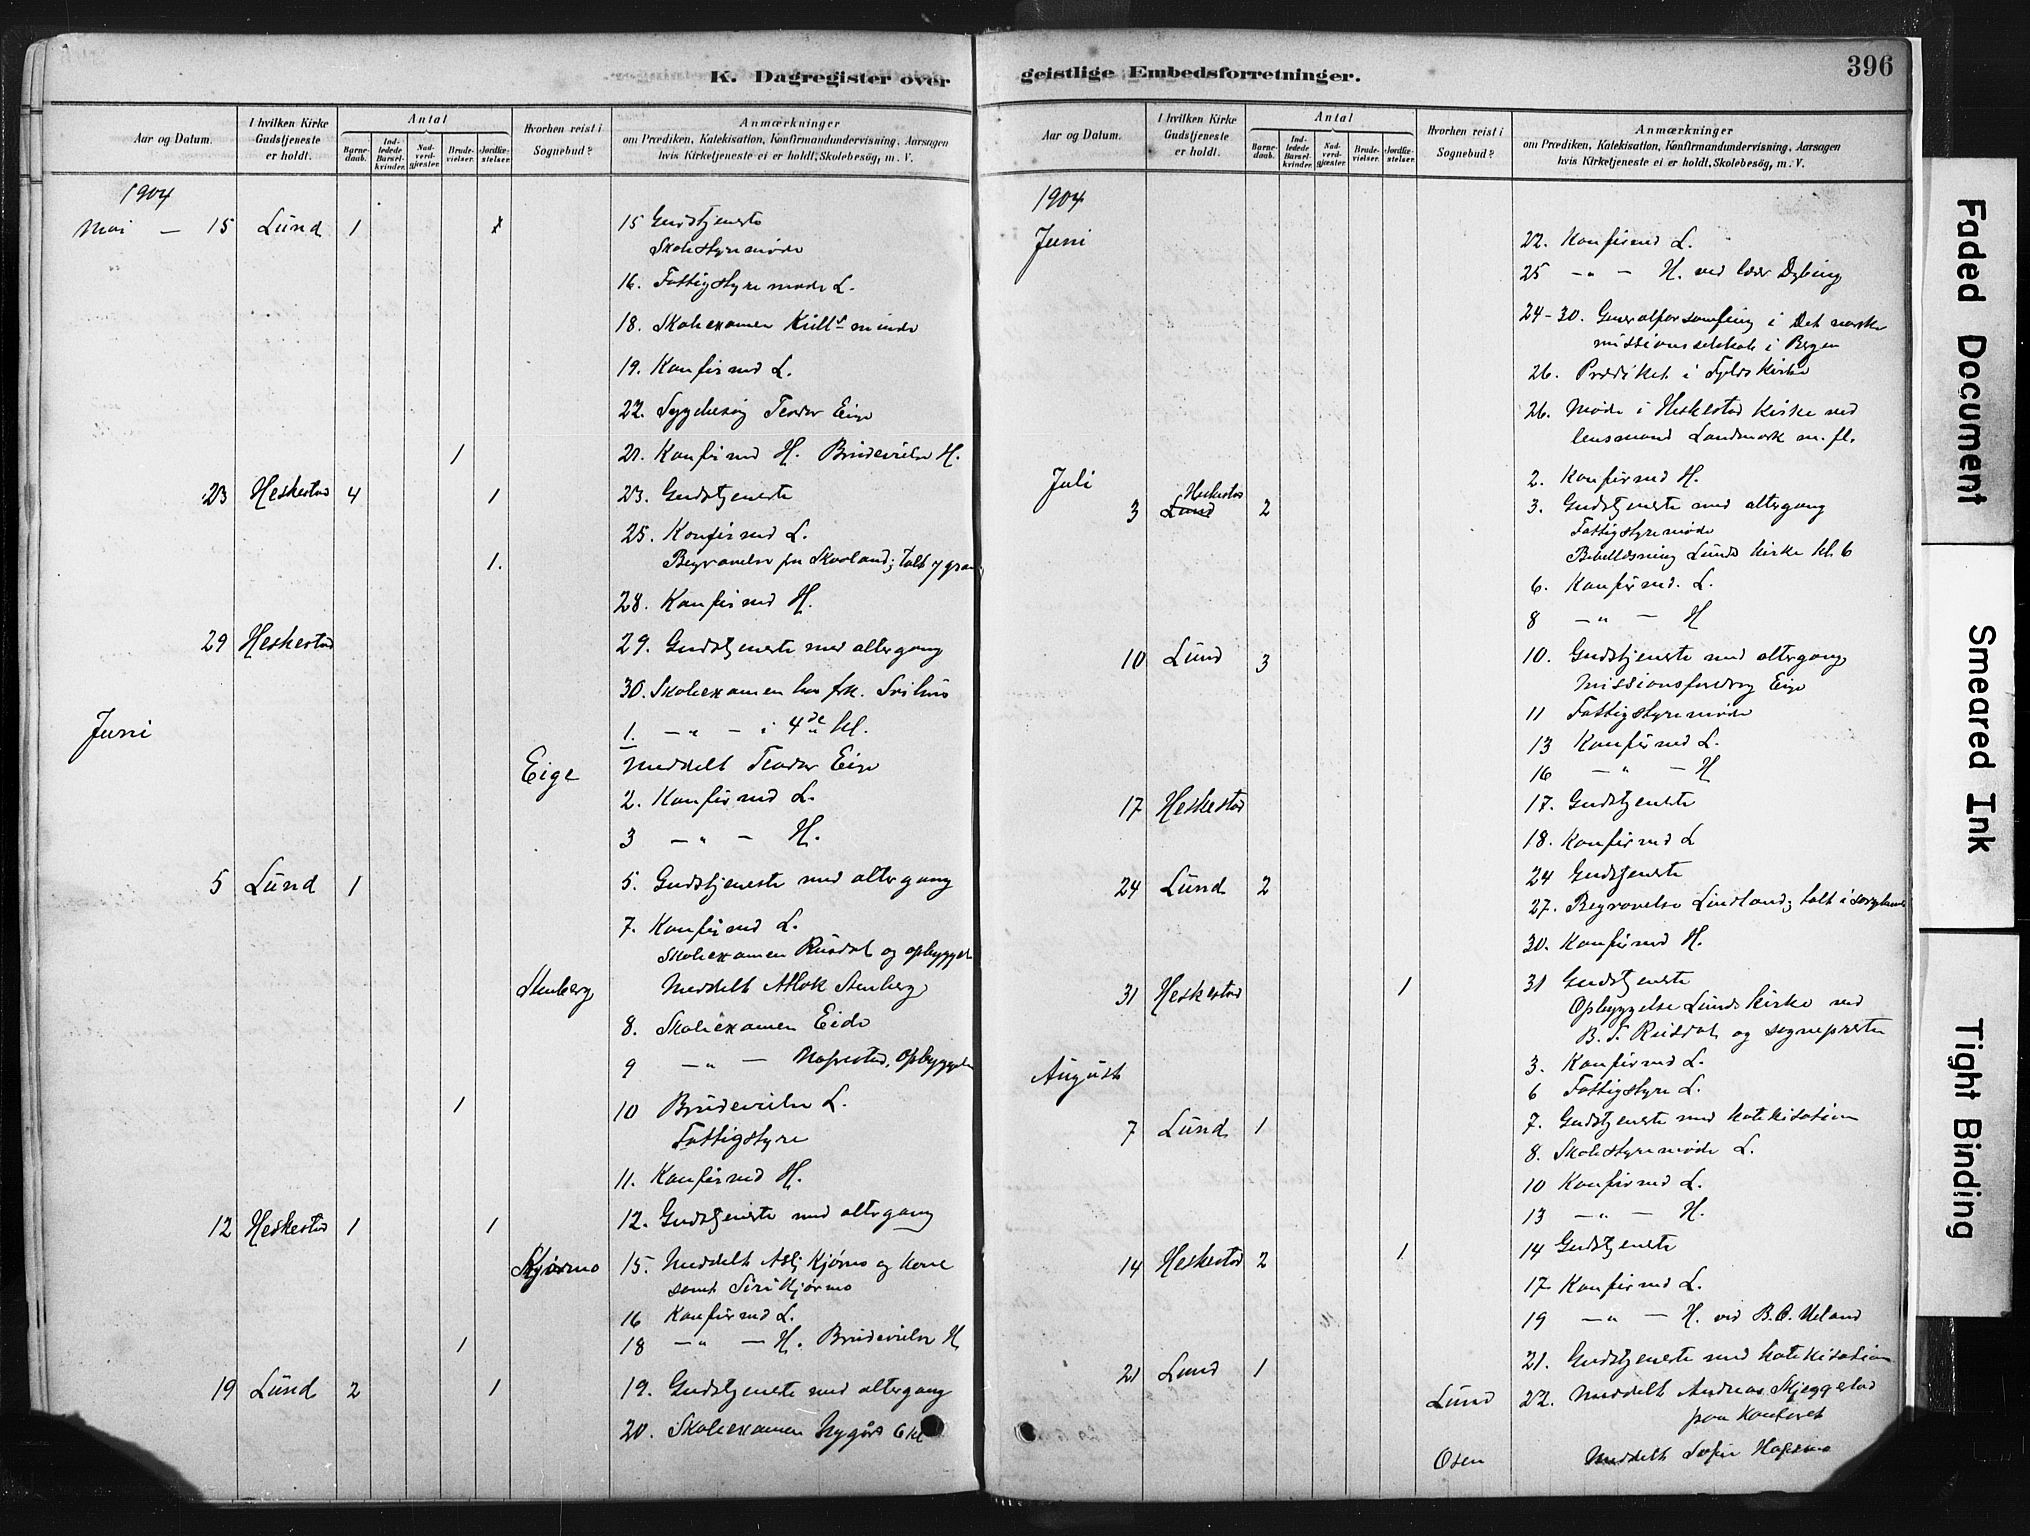 K. Dagregister over
Aar og Datum.
I hvilken Kirke Gudstjeneste er holdt.
Antal
Barnedaab.
Indledede Barselkvinder.
Nadverdgjester.
Brudevielser.
Jordfæstelser.
Hvorhen reist i Sognebud?
Anmærkninger
om Prædiken, Katekisation, Konfirmandundervisning, Aarsagen
hvis Kirketjeneste ei er holdt, Skolebesög, m. V.
1904
Mai — 15 Lund 1 15 Gudstjeneste
Skolestyremöde
16. Fattigstyremöde L.
18. Skoleexamen
19. Konfirmd L.
22. Sygebesög Teodor Eige
1 21. Konfirmd H. Brudevielse H.
23 Heskestad 4 1 23. Gudstjeneste
25. Konfirmd L.
1. Begravelse paa Skooland; talt
28. Konfirmd H.
29 Heskestad 29. Gudstjeneste med altergang
30. Skoleexamen hos frk.
Juni 1. — " — i 4de kl.
Eige Meddelt Teodor Eige
2. Konfirmd L.
3 — " — H.
5 Lund 1 5. Gudstjeneste med altergang
7. Konfirmd L.
Skoleexamen Rusdal og opbyggel
Stenberg Meddelt Stenberg
8. Skoleexamen Eide
9 — " — opbyggelse
1 10 Brudevielse L.
Fattigstyre
11. Konfirmd H.
12 Heskestad 1 1 12. Gudstjeneste med altergang
Kjørmo 15. Meddelt Kjørmo og kone
samt Siri Kjørmo
16 Konfirmd L.
1 18 — " — H. Brudevielse H
19 Lund 2 1 19. Gudstjeneste med altergang
20. Skoleexamen Nygårds 6 kl
geistlige Embedsforretninger.
396
Aar og Datum.
I hvilken Kirke Gudstjeneste er holdt.
Antal
Barnedaab.
Indledede Barselkvinder.
Nadverdgjester.
Brudevielser.
Jordfæstelser.
Hvorhen reist i Sognebud?
Anmærkninger
om Prædiken, Katekisation, Konfirmandundervisning, Aarsagen
hvis Kirketjeneste ei er holdt, Skolebesög, m. V.
1904
Juni 22. Konfirmd L.
25 — " — H. ved lærer Dybing
24-30. Generalforsamling i Det norske
missionsselskab i Bergen
26. Prædiket i kirke
26. Møde i Heskestad kirke ved
lensmand Landmark m. fl.
Juli 2. Konfirmd H.
3 Heskestad Lund 2 3. Gudstjeneste med altergang
Fattigstyremøde
Bibellæsning Lunds kirke kl. 6
6. Konfirmd. L.
8 — " — H
10 Lund 3 10. Gudstjeneste med altergang
Missionsforedrag Eige
11 Fattigstyremøde
13 Konfirmd L.
16 — " — H
17 Heskestad 17. Gudstjeneste
18. Konfirmd L
24 Lund 2 24 Gudstjeneste
27. Begravelse Lindland; talt i
30. Konfirmd H.
31 Heskestad 1 31 Gudstjeneste
Opbyggelse Lunds kirke ved
B. T. Rusdal og sognepresten
August 3. Konfirmd L.
6 Fattigstyre L.
7 Lund 1 7. Gudstjeneste med katekisation
8. Skolestyremøde L.
10 Konfirmd L.
13 — " — H.
14 Heskestad 2 1 14 Gudstjeneste
17. Konfirmd L.
19 — " — H. ved B. O. Ueland
21 Lund 1 21. Gudstjeneste med katekisation
Lund 22. Meddelt Andreas Skjeggestad
paa kontoret
Osen Meddelt Sofie
Faded Document
Smeared Ink
Tight Binding